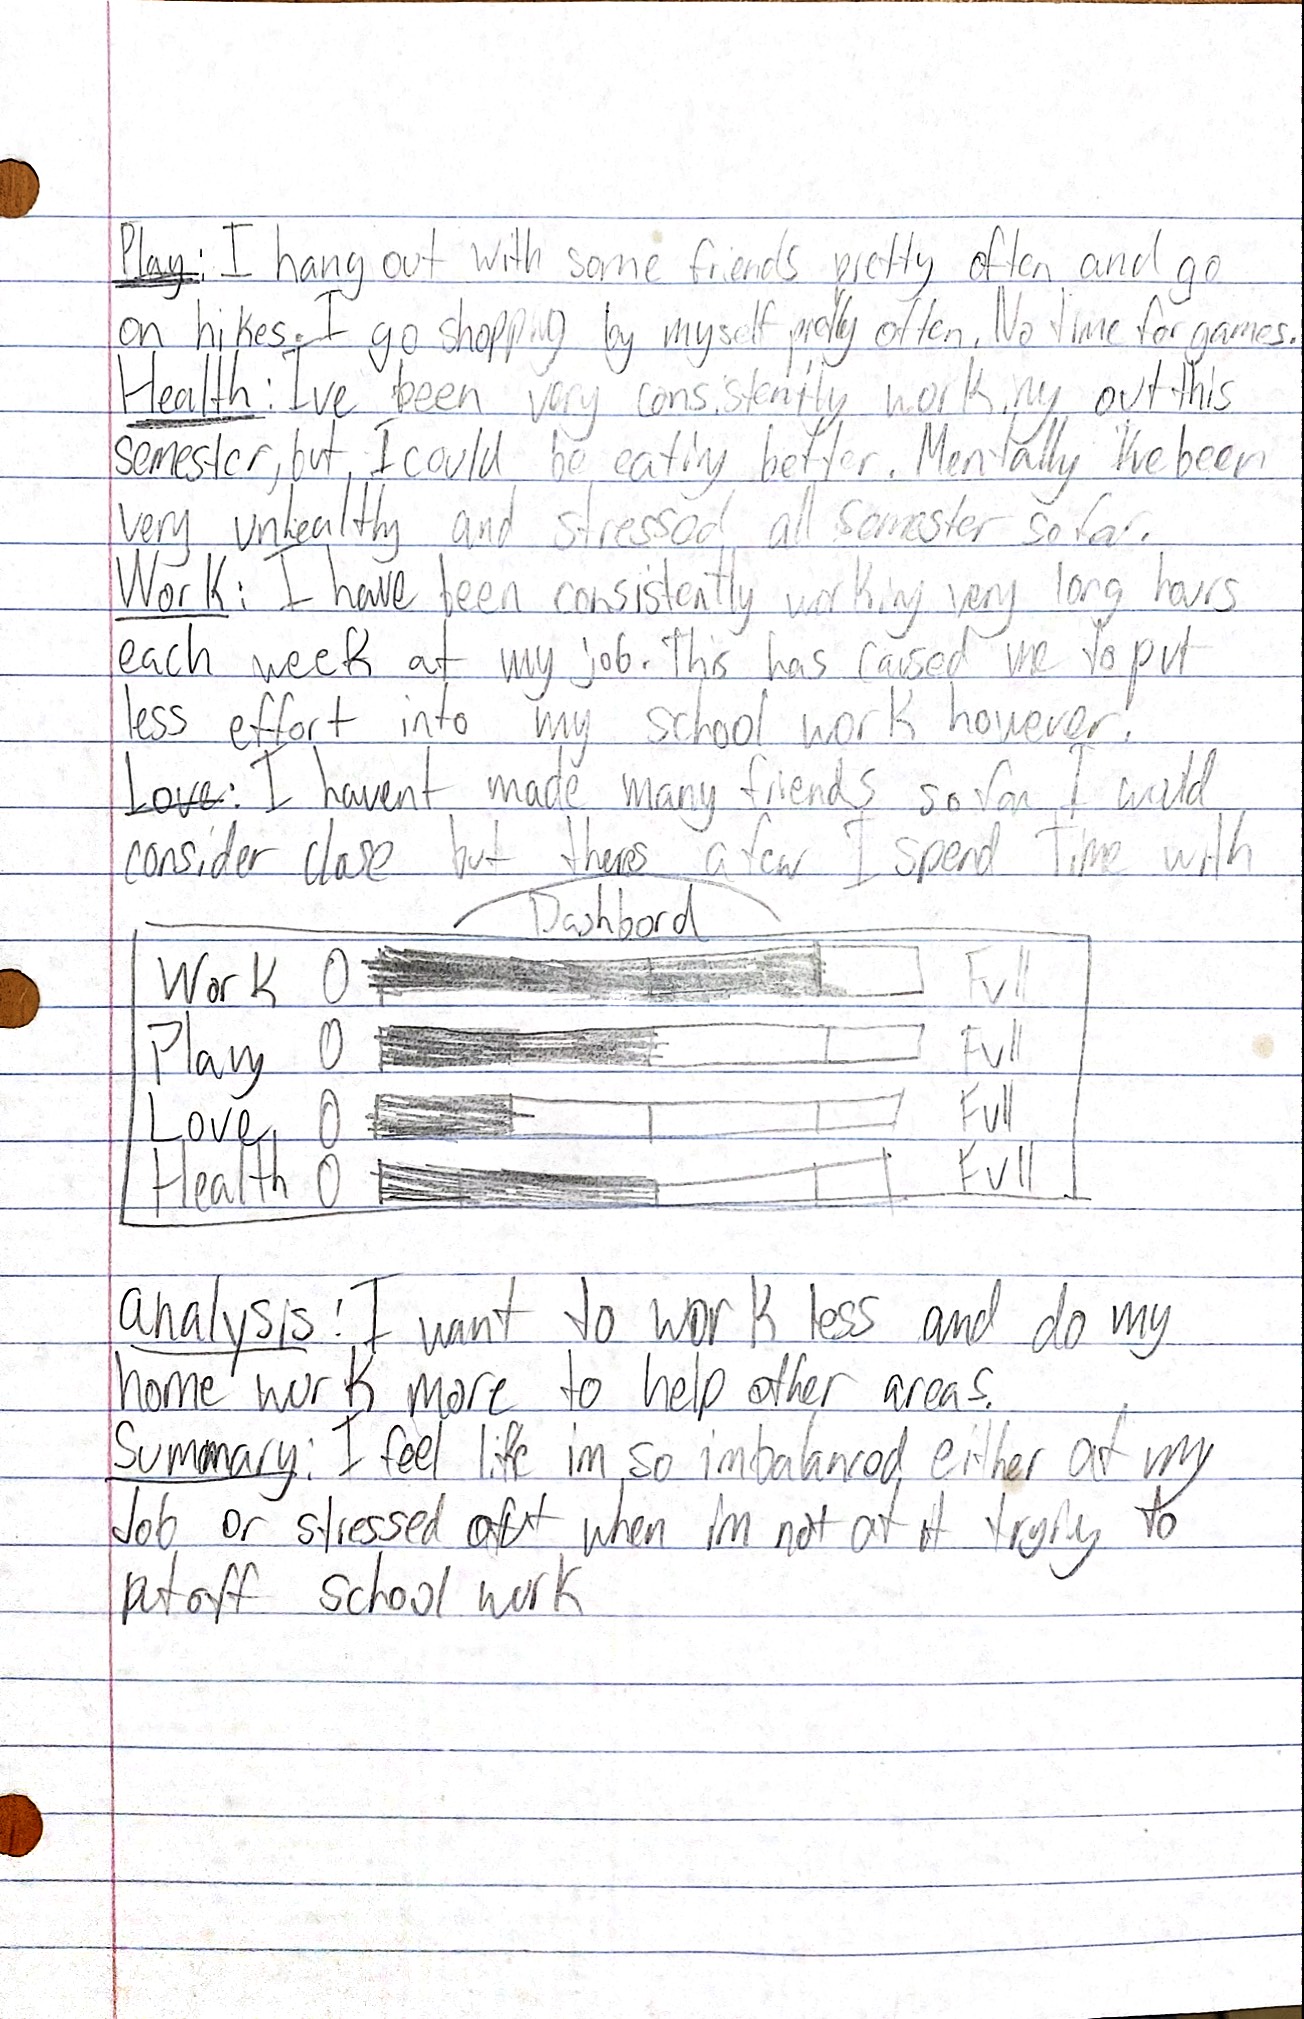 Play: I hang out with some friends pretty often and go
on hikes. I go shopping by myself pretty often. No time for games.
Health: Ive been very consistently working out this
semester, but I could be eating better. Mentally I've been
very unhealthy and stressed all semester so far.
Work: I have been consistently working very long hours
each week at my job. This has caused me to put
less effort into my school work however.
Love: I havent made many friends so far I would
consider close but theres a few I spend Time with
Dashbord
Work 0 Full
Play 0 Full
Love 0 Full
Health 0 Full
analysis: I want to work less and do my
home work more to help other areas.
Summary: I feel life im so imbalanced either at my
Job or stressed when im not at it trying to
put off school work